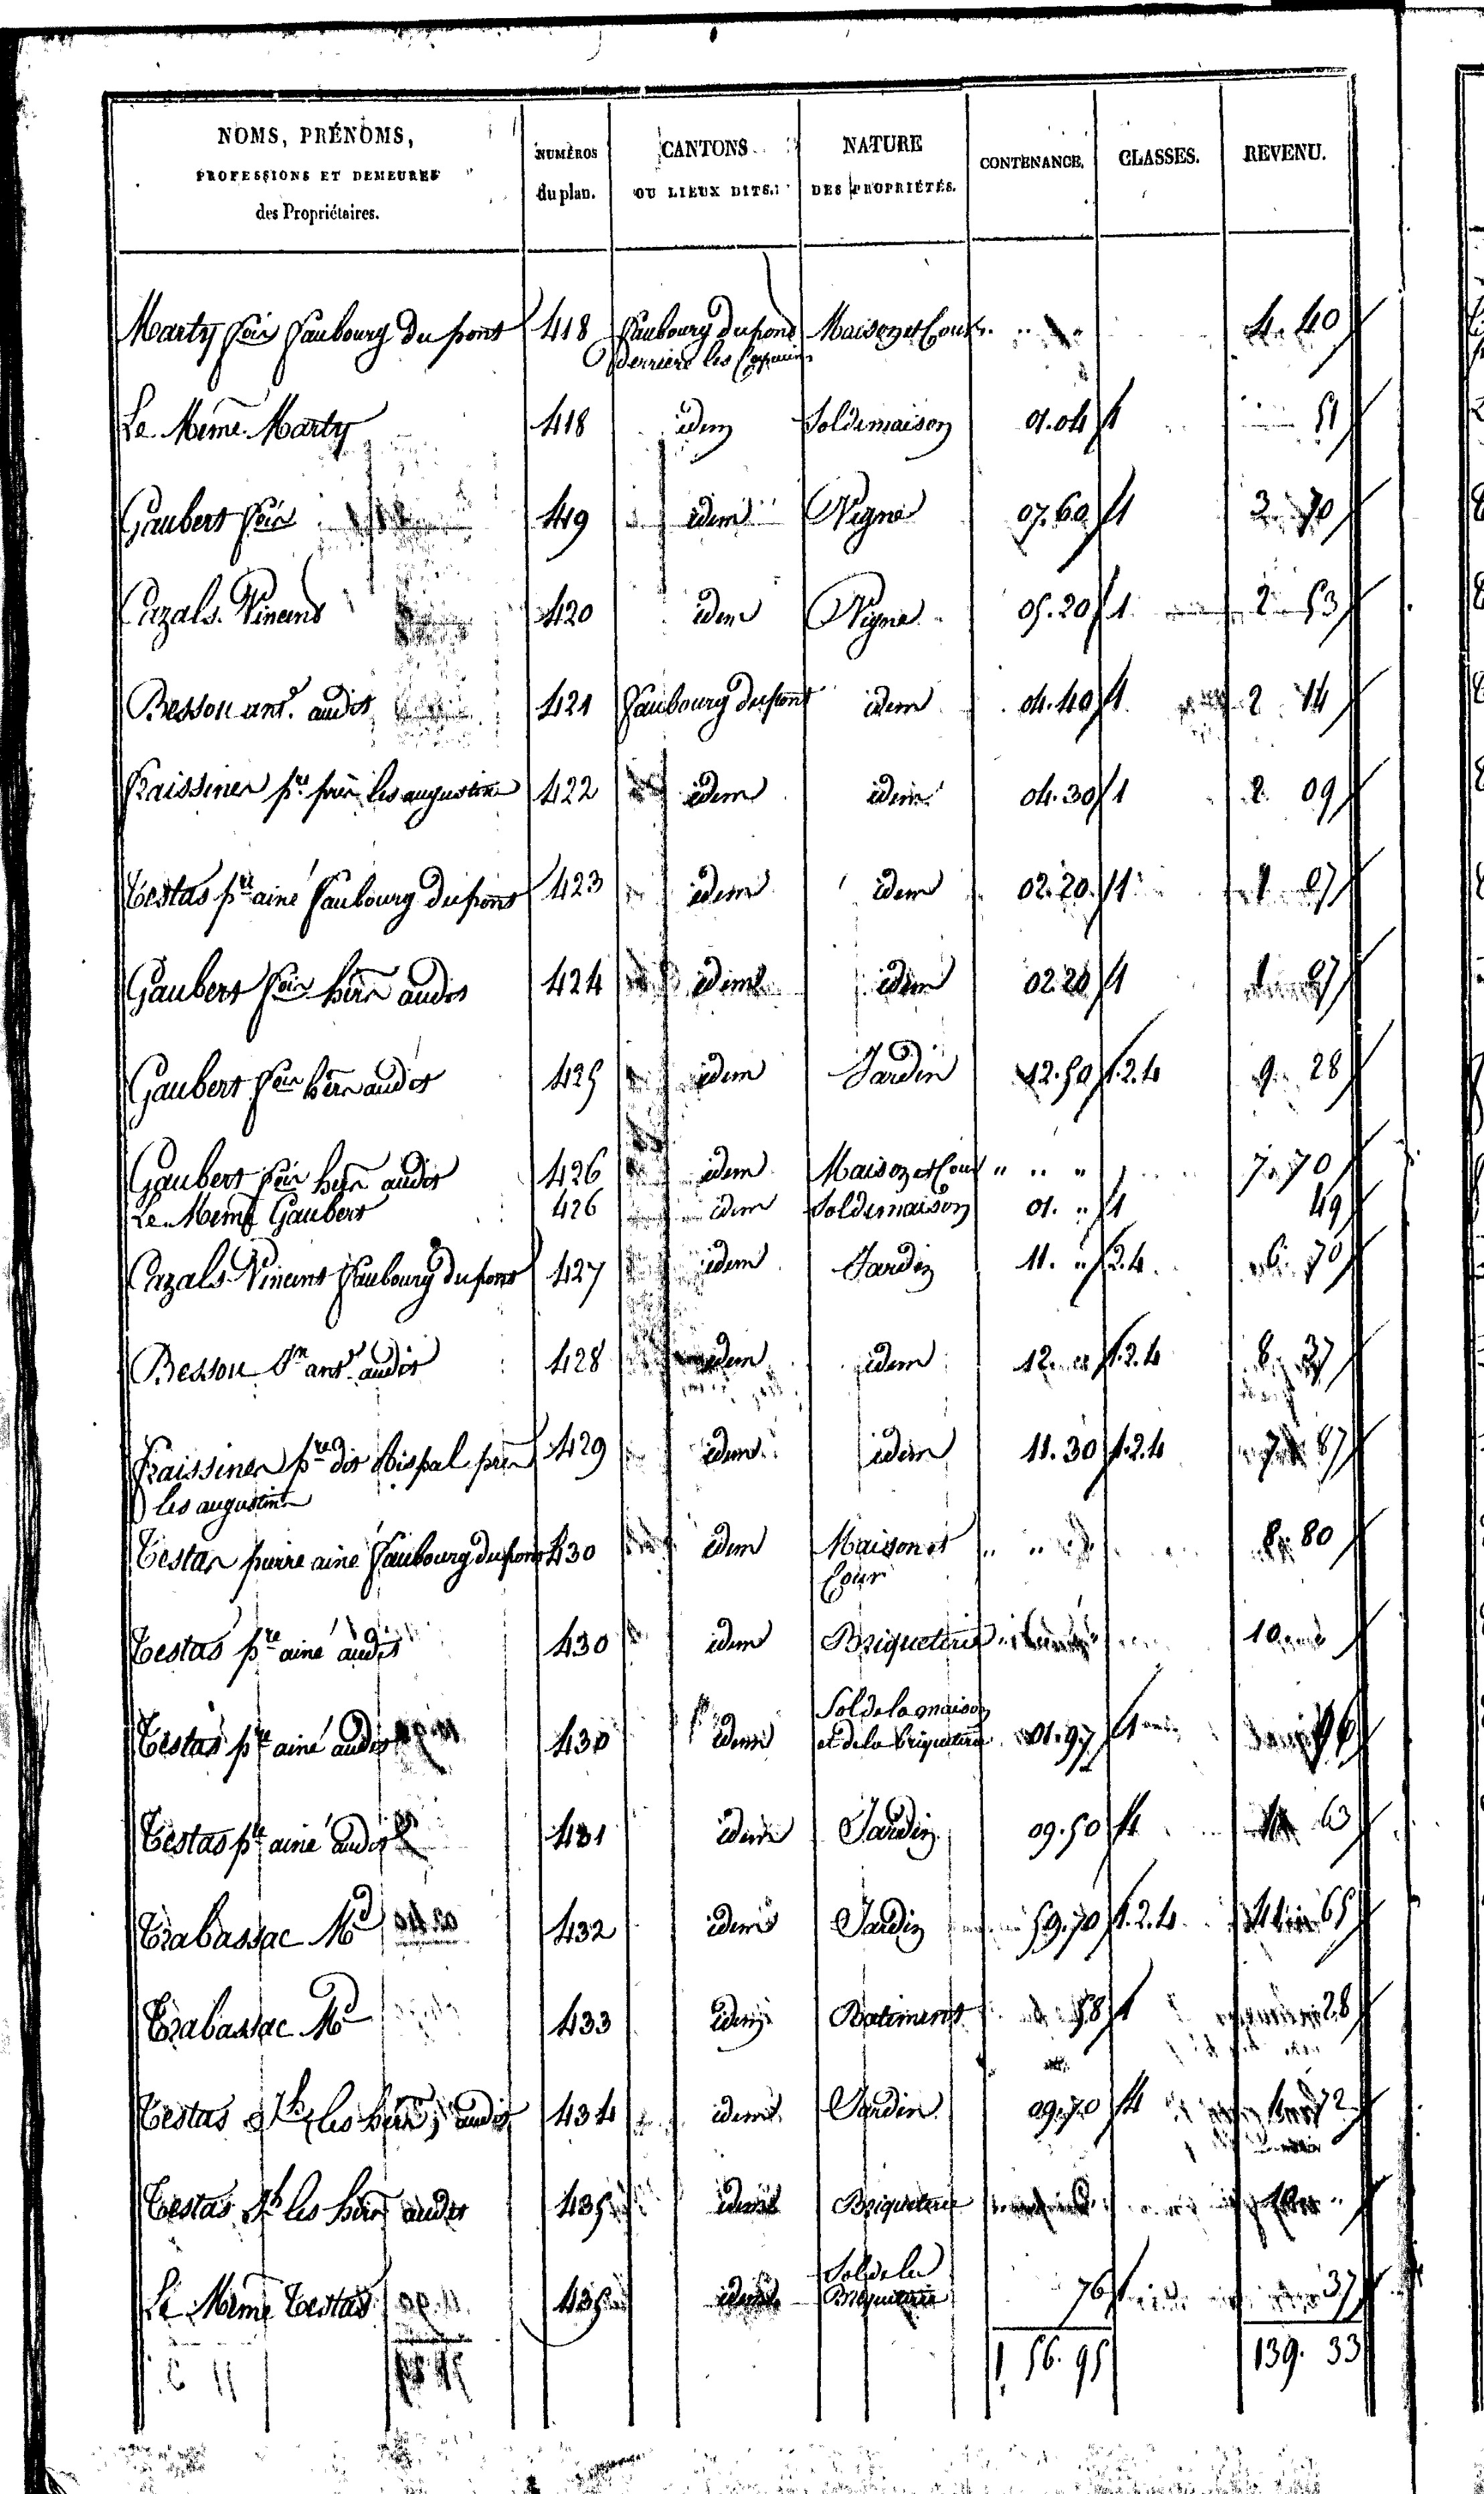 NOMS, PRÉNOMS, PROFESSIONS ET DEMEURES des Propriétaires. NUMÉROS du plan. CANTONS OU LIEUX DITS. NATURE DES PROPRIÉTÉS. CONTENANCE. CLASSES. REVENU.
Marty faubourg du pont 418 faubourg du pont Maison et Cour 4. 40
derrière les Capucins
Le Même Marty 418 idem Sol de maison 01.04 1 51
Gaubert 419 idem Vigne 07.60 1 3. 70
Cazals Vincent 420 idem Vigne 05.20 1 2 53
Bessou ant. audit 421 faubourg du pont idem 04.40 1 2 14
Fraissinet pre les augustins 422 idem idem 04.30 1 2. 09
Testas pre ainé faubourg du pont 423 idem idem 02.20. 1 1 07
Gaubert audit 424 idem idem 02.20 1 07
Gaubert audit 425 idem Jardin 12.50 1.2.4 9. 28
Gaubert audit 426 idem Maison et Cour " " " 7. 70
Le Même Gaubert 426 idem Sol de maison 01. " 1 49
Cazals Vincent faubourg du pont 427 idem Jardin 11. " 2.4. 6. 70
Bessou ant. audit 428 idem idem 12. 1.2.4 8. 37
Fraissinet pre dit 429 idem idem 11.30 1.2.4 7 87
les augustins
Testas pierre ainé faubourg du pont 430 idem Maison et 8. 80
Cour
Testas pre ainé audit 430 idem Briqueterie 10
Sol de la maison
Testas pre ainé audit 430 idem et de la briqueterie 01.97 1 96
Testas pre ainé audit 431 idem Jardin 09.50 4 63
Trabassac Md 432 idem Jardin 59.70 1.2.4. 65
Trabassac Md 433 idem Batiment 58 1 28
Testas Jh (les) audit 434 idem Jardin 09.70 4 72
Testas Jh les audit 435 idem Briqueterie
Sol de la
Le Même Testas 435 idem Briqueterie 76 1 37
1 56. 95 139. 33